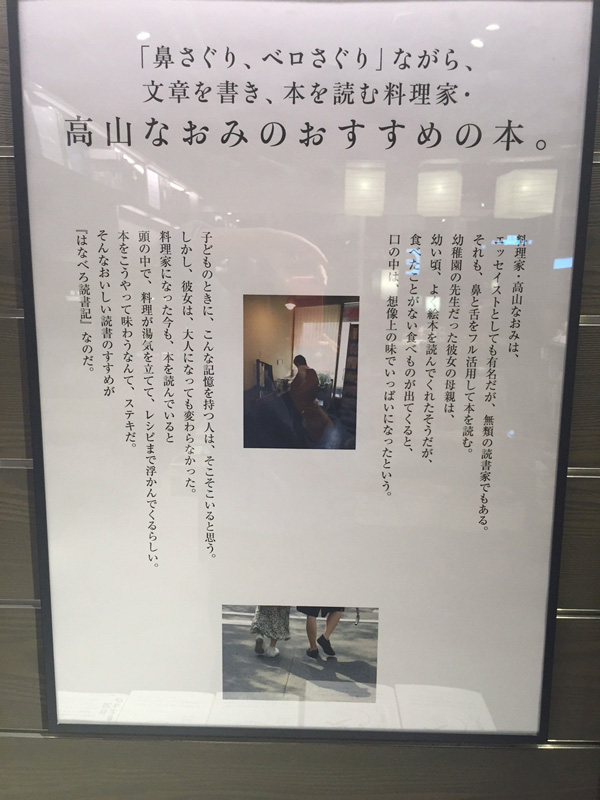 「鼻さぐり、ベロさぐり」ながら、
文章を書き、本を読む料理家・
高山なおみのおすすめの本。
料理家・高山なおみは、
エッセイストとしても有名だが、無類の読書家でもある。
それも、鼻と舌をフル活用して本を読む。
幼稚園の先生だった彼女の母親は、
幼い頃、よく絵本を読んでくれたそうだが、
食べたことがない食べものが出てくると、
口の中は、想像上の味でいっぱいになったという。
子どものときに、こんな記憶を持つ人は、そこそこいると思う。
しかし、彼女は、大人になっても変わらなかった。
料理家になった今も、本を読んでいると
頭の中で、料理が湯気を立てて、レシピまで浮かんでくるらしい。
本をこうやって味わうなんて、ステキだ。
そんなおいしい読書のすすめが
『はなべろ読書記』なのだ。